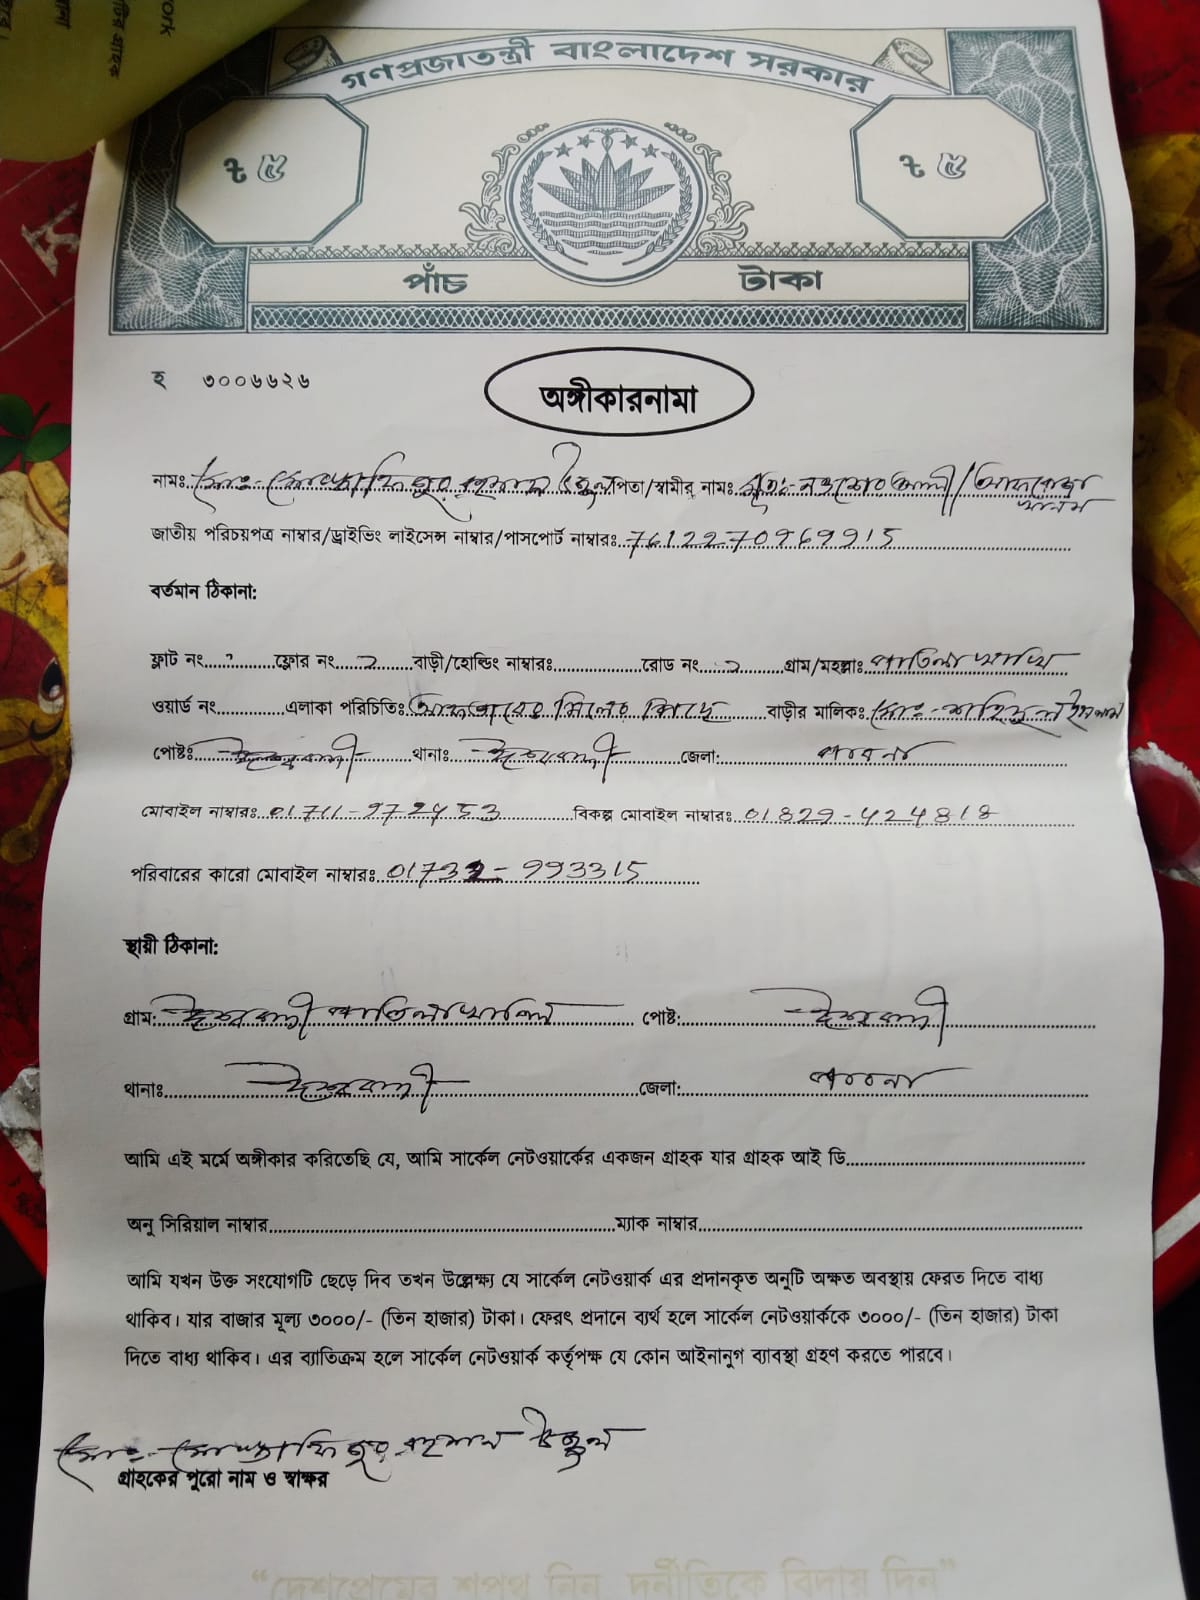 work
গণপ্রজাতন্ত্রী বাংলাদেশ সরকার
৳ ৫ ৳ ৫
পাঁচ টাকা
হ ৩০০৬৬২৬
অঙ্গীকারনামা
নামঃ মোঃ- মোস্তাফিজুর রহমান পিতা/স্বামীর নামঃ মৃতঃ-
জাতীয় পরিচয়পত্র নাম্বার/ড্রাইভিং লাইসেন্স নাম্বার/পাসপোর্ট নাম্বারঃ 7612270969915
বর্তমান ঠিকানা:
ফ্লাট নং ফ্লোর নং ২ বাড়ী/হোল্ডিং নাম্বারঃ রোড নং ২ গ্রাম/মহল্লাঃ
ওয়ার্ড নং এলাকা পরিচিতিঃ মিলের বাড়ীর মালিক: মোঃ- শহিদুল ইসলাম
পোষ্টঃ ঈশ্বরদী থানাঃ ঈশ্বরদী জেলা: পাবনা
মোবাইল নাম্বারঃ 01711-972453 বিকল্প মোবাইল নাম্বারঃ 01829-424818
পরিবারের কারো মোবাইল নাম্বারঃ 01732-993315
স্থায়ী ঠিকানা:
গ্রাম: ঈশ্বরদী পোষ্ট: ঈশ্বরদী
থানাঃ ঈশ্বরদী জেলা: পাবনা
আমি এই মর্মে অঙ্গীকার করিতেছি যে, আমি সার্কেল নেটওয়ার্কের একজন গ্রাহক যার গ্রাহক আই ডি
অনু সিরিয়াল নাম্বার ম্যাক নাম্বার
আমি যখন উক্ত সংযোগটি ছেড়ে দিব তখন উল্লেক্ষ্য যে সার্কেল নেটওয়ার্ক এর প্রদানকৃত অনুটি অক্ষত অবস্থায় ফেরত দিতে বাধ্য
থাকিব। যার বাজার মূল্য ৩০০০/- (তিন হাজার) টাকা। ফেরৎ প্রদানে ব্যর্থ হলে সার্কেল নেটওয়ার্ককে ৩০০০/- (তিন হাজার) টাকা
দিতে বাধ্য থাকিব। এর ব্যাতিক্রম হলে সার্কেল নেটওয়ার্ক কর্তৃপক্ষ যে কোন আইনানুগ ব্যাবস্থা গ্রহণ করতে পারবে।
মোঃ- মোস্তাফিজুর রহমান
গ্রাহকের পুরো নাম ও স্বাক্ষর
“দেশপ্রেমের শপথ নিন, দুর্নীতিকে বিদায় দিন”